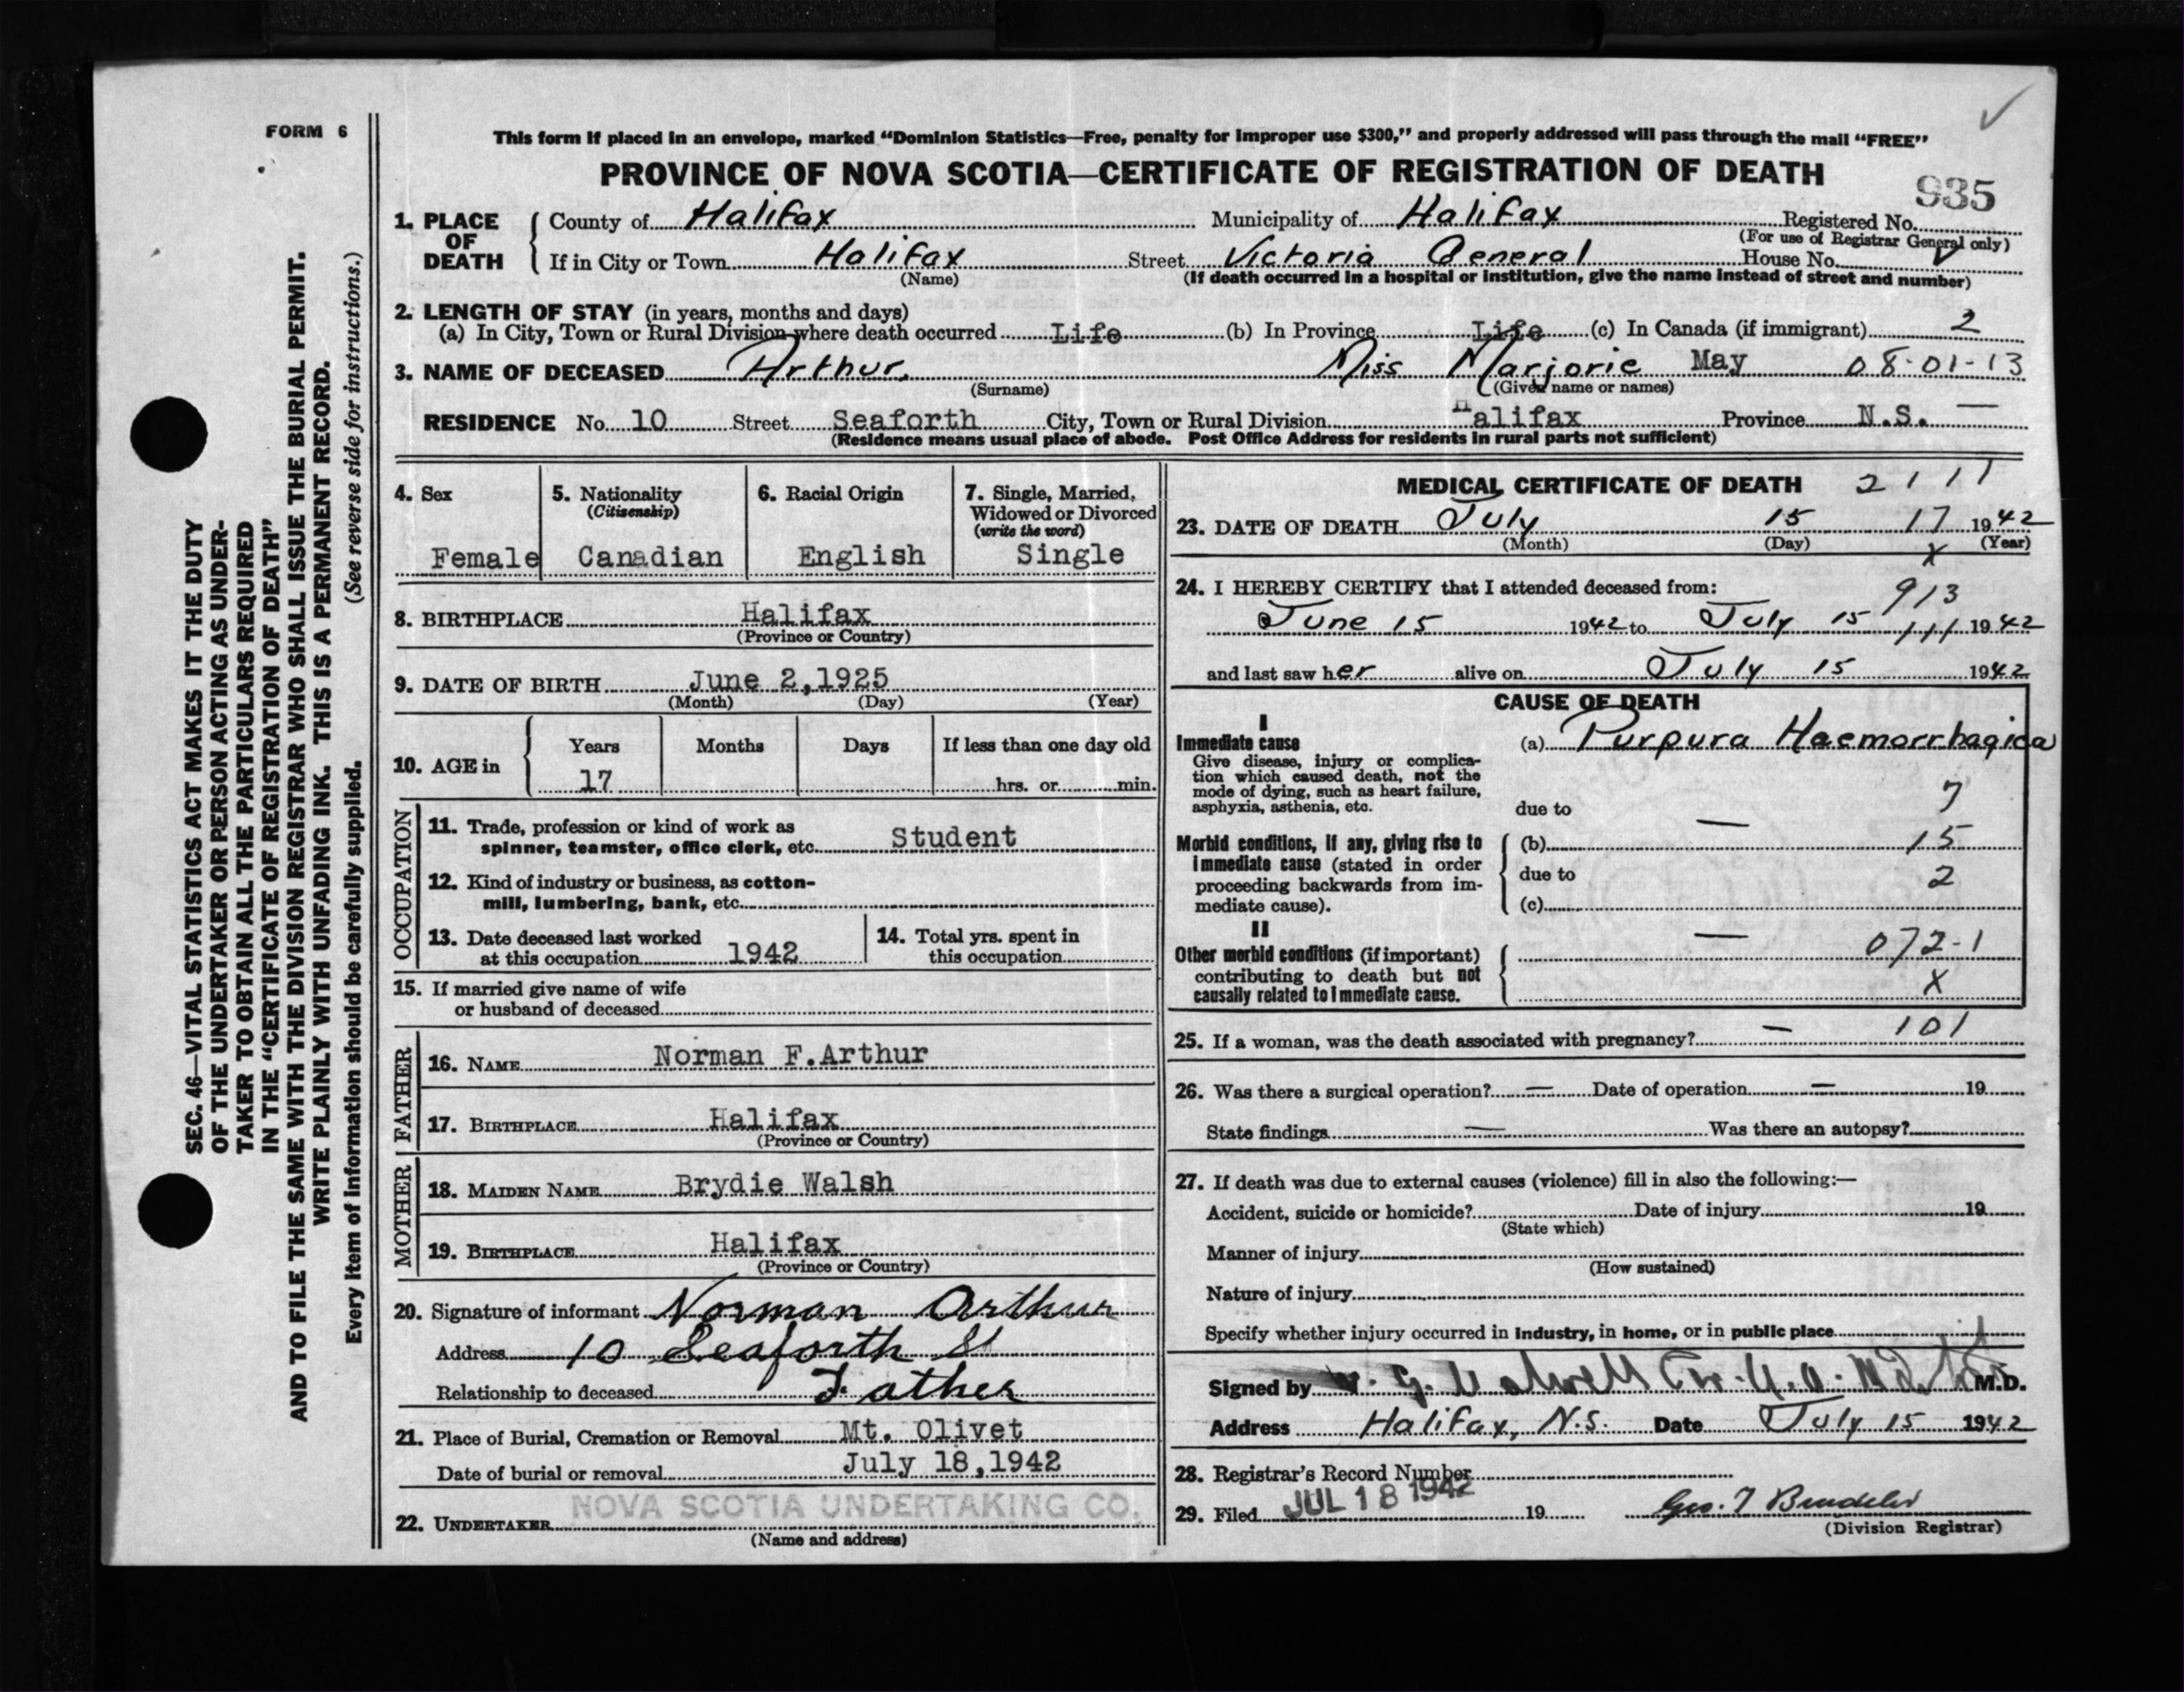 FORM 6
This form if placed in an envelope, marked "Dominion Statistics—Free, penalty for improper use $300," and properly addressed will pass through the mail "FREE"
PROVINCE OF NOVA SCOTIA—CERTIFICATE OF REGISTRATION OF DEATH
935
1. PLACE OF DEATH County of Halifax Municipality of Halifax Registered No.
(For use of Registrar General only)
If in City or Town Halifax Street Victoria General House No.
(Name) (If death occurred in a hospital or institution, give the name instead of street and number)
2. LENGTH OF STAY (in years, months and days)
(a) In City, Town or Rural Division where death occurred Life (b) In Province Life (c) In Canada (if immigrant) 2
3. NAME OF DECEASED Arthur Miss Marjorie May 08-01-13
(Surname) (Given name or names)
RESIDENCE No. 10 Street Seaforth City, Town or Rural Division Halifax Province N.S. —
(Residence means usual place of abode. Post Office Address for residents in rural parts not sufficient)
4. Sex
Female
5. Nationality
(Citizenship)
Canadian
6. Racial Origin
English
7. Single, Married,
Widowed or Divorced
(write the word)
Single
8. BIRTHPLACE Halifax
(Province or Country)
9. DATE OF BIRTH June 2,1925
(Month) (Day) (Year)
10. AGE in Years Months Days If less than one day old
17 hrs. or min.
OCCUPATION
11. Trade, profession or kind of work as
spinner, teamster, office clerk, etc. Student
12. Kind of industry or business, as cotton-
mill, lumbering, bank, etc.
13. Date deceased last worked
at this occupation 1942
14. Total yrs. spent in
this occupation
15. If married give name of wife
or husband of deceased
FATHER
16. NAME Norman F.Arthur
17. BIRTHPLACE Halifax
(Province or Country)
MOTHER
18. MAIDEN NAME Brydie Walsh
19. BIRTHPLACE Halifax
(Province or Country)
20. Signature of informant Norman Arthur
Address 10 Seaforth St
Relationship to deceased Father
21. Place of Burial, Cremation or Removal Mt. Olivet
Date of burial or removal July 18,1942
22. UNDERTAKER NOVA SCOTIA UNDERTAKING CO.
(Name and address)
MEDICAL CERTIFICATE OF DEATH 2111
23. DATE OF DEATH July 15 17 1942
(Month) (Day) X (Year)
24. I HEREBY CERTIFY that I attended deceased from:
913
June 15 1942 to July 15 111 1942
and last saw her alive on July 15 1942
CAUSE OF DEATH
I
Immediate cause (a) Purpura Haemorrhagica
Give disease, injury or complica-
tion which caused death, not the
mode of dying, such as heart failure,
asphyxia, asthenia, etc.
due to — 7
Morbid conditions, if any, giving rise to
immediate cause (stated in order
proceeding backwards from im-
mediate cause).
(b) 15
due to 2
(c)
II
Other morbid conditions (if important)
contributing to death but not
causally related to immediate cause.
— 072-1
X
25. If a woman, was the death associated with pregnancy? — 101
26. Was there a surgical operation? — Date of operation — 19
State findings — Was there an autopsy?
27. If death was due to external causes (violence) fill in also the following:—
Accident, suicide or homicide? Date of injury 19
(State which)
Manner of injury
(How sustained)
Nature of injury
Specify whether injury occurred in industry, in home, or in public place
Signed by M.D.
Address Halifax, N.S. Date July 15 1942
28. Registrar's Record Number
29. Filed JUL 18 1942 19
(Division Registrar)
SEC. 46—VITAL STATISTICS ACT MAKES IT THE DUTY
OF THE UNDERTAKER OR PERSON ACTING AS UNDER-
TAKER TO OBTAIN ALL THE PARTICULARS REQUIRED
IN THE "CERTIFICATE OF REGISTRATION OF DEATH"
AND TO FILE THE SAME WITH THE DIVISION REGISTRAR WHO SHALL ISSUE THE BURIAL PERMIT.
WRITE PLAINLY WITH UNFADING INK. THIS IS A PERMANENT RECORD.
Every item of information should be carefully supplied. (See reverse side for instructions.)